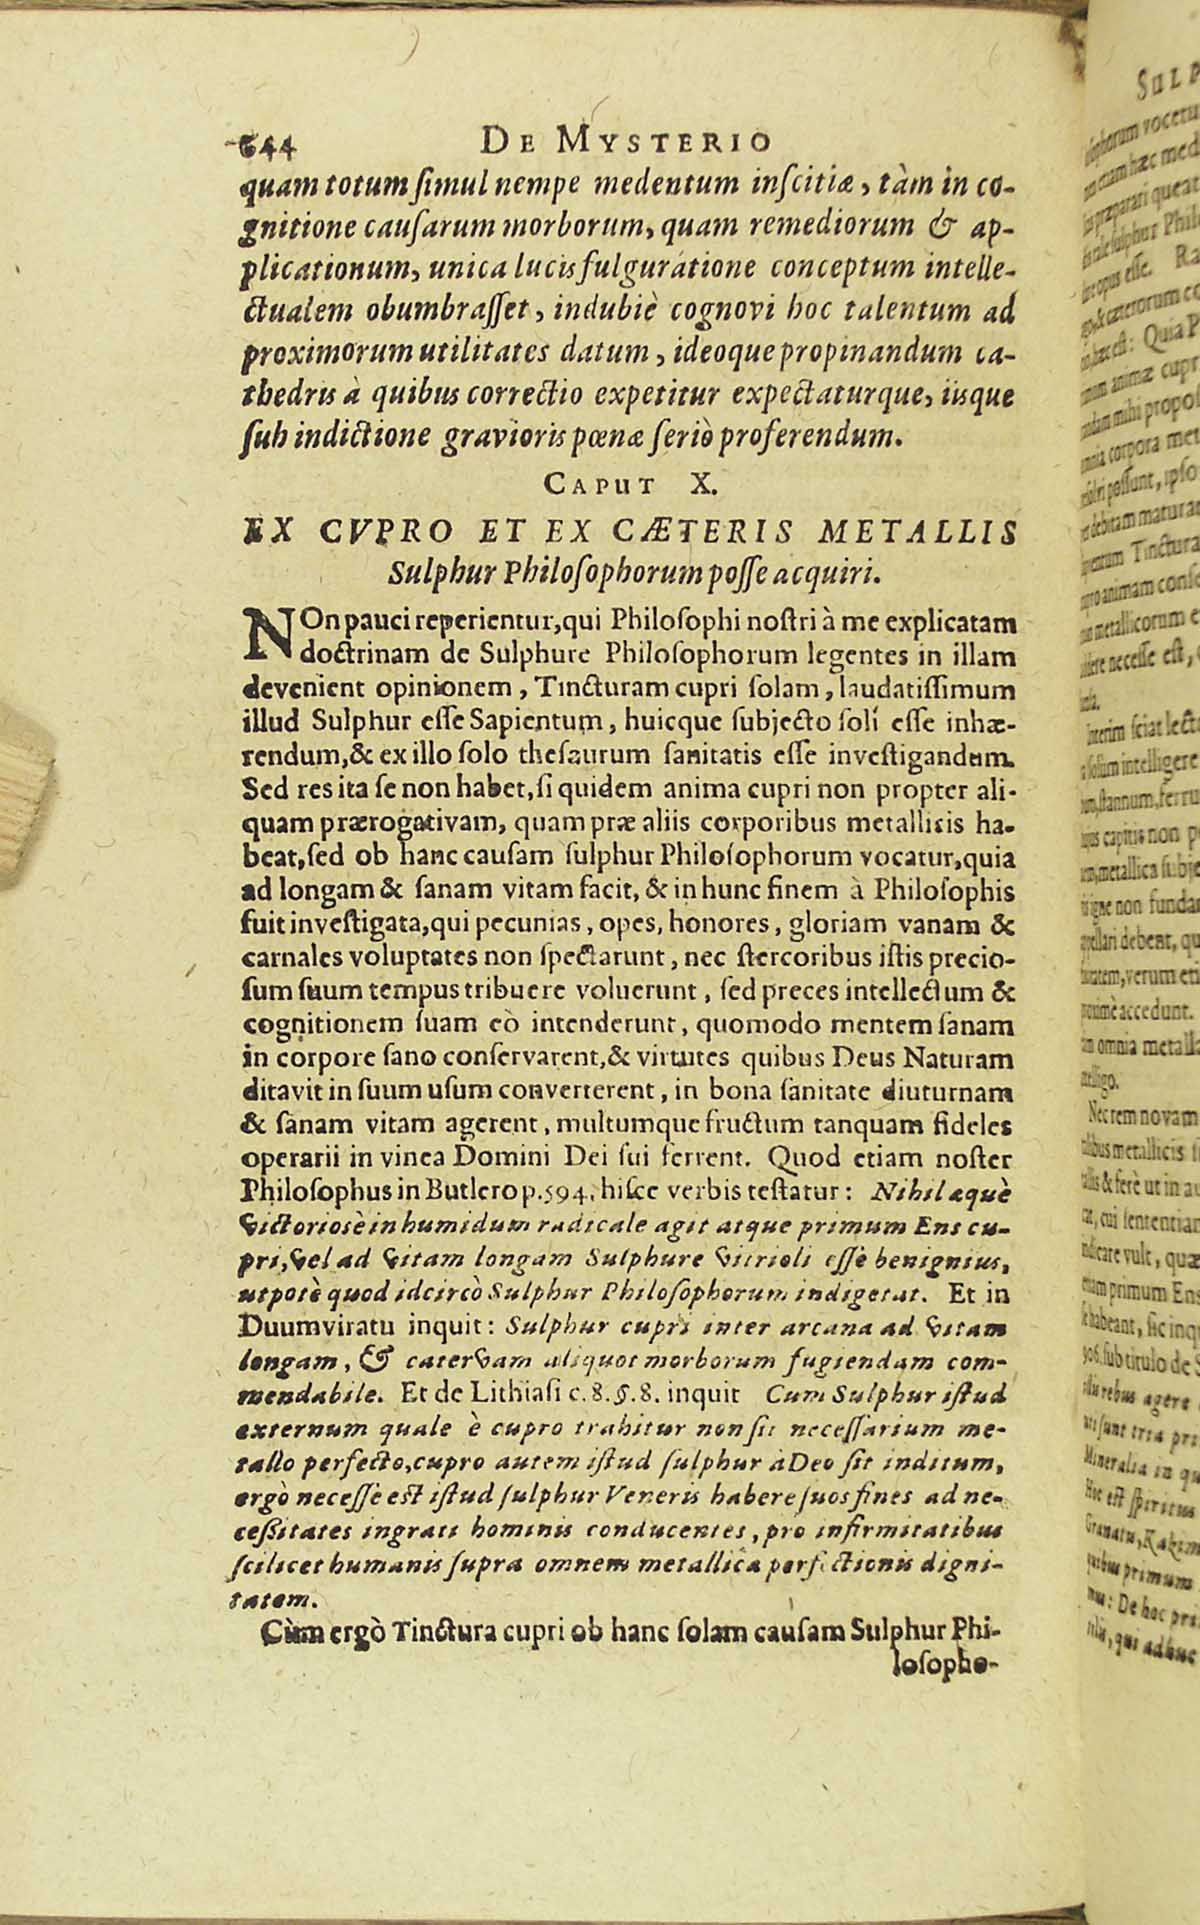 644 DE MYSTERIO
quam totum simul nempe medentum inscitiæ, tàm in co-
gnitione causarum morborum, quam remediorum & ap-
plicationum, unica lucis fulguratione conceptum intelle-
ctualem obumbrasset, indubiè cognovi hoc talentum ad
proximorum utilitates datum, ideoque propinandum ca-
thedris à quibus correctio expetitur expectaturque, iisque
sub indictione gravioris pœnæ seriò proferendum.
CAPUT X.
EX CVPRO ET EX CÆTERIS METALLIS
Sulphur Philosophorum posse acquiri.
NOn pauci reperientur, qui Philosophi nostri à me explicatam
doctrinam de Sulphure Philosophorum legentes in illam
devenient opinionem, Tincturam cupri solam, laudatissimum
illud Sulphur esse Sapientum, huicque subjecto soli esse inhæ-
rendum, & ex illo solo thesaurum sanitatis esse investigandum.
Sed res ita se non habet, si quidem anima cupri non propter ali-
quam prærogativam, quam præ aliis corporibus metallicis ha-
beat, sed ob hanc causam sulphur Philosophorum vocatur, quia
ad longam & sanam vitam facit, & in hunc finem à Philosophis
fuit investigata, qui pecunias, opes, honores, gloriam vanam &
carnales voluptates non spectarunt, nec stercoribus istis precio-
sum suum tempus tribuere voluerunt, sed preces intellectum &
cognitionem suam eò intenderunt, quomodo mentem sanam
in corpore sano conservarent, & virtutes quibus Deus Naturam
ditavit in suum usum converterent, in bona sanitate diuturnam
& sanam vitam agerent, multumque fructum tanquam fideles
operarii in vinea Domini Dei sui ferrent. Quod etiam noster
Philosophus in Butlero p. 594. hisce verbis testatur: Nihil æquè
victoriosè in humidum radicale agit atque primum Ens cu-
pri, vel ad vitam longam Sulphure vitrioli esse benignius,
utpotè quod idcircò Sulphur Philosophorum indigetat. Et in
Duumviratu inquit: Sulphur cupri inter arcana ad vitam
longam, & catervam aliquot morborum fugiendam com-
mendabile. Et de Lithiasi c. 8. §. 8. inquit Cum Sulphur istud
externum quale è cupro trahitur non sit necessarium me-
tallo perfecto, cupro autem istud sulphur à Deo sit inditum,
ergò necesse est istud sulphur Veneris habere suos fines ad ne-
cessitates ingrati hominis conducentes, pro infirmitatibus
scilicet humanis supra omnem metallica perfectionis digni-
tatem.
Cùm ergò Tinctura cupri ob hanc solam causam Sulphur Phi-
losopho-